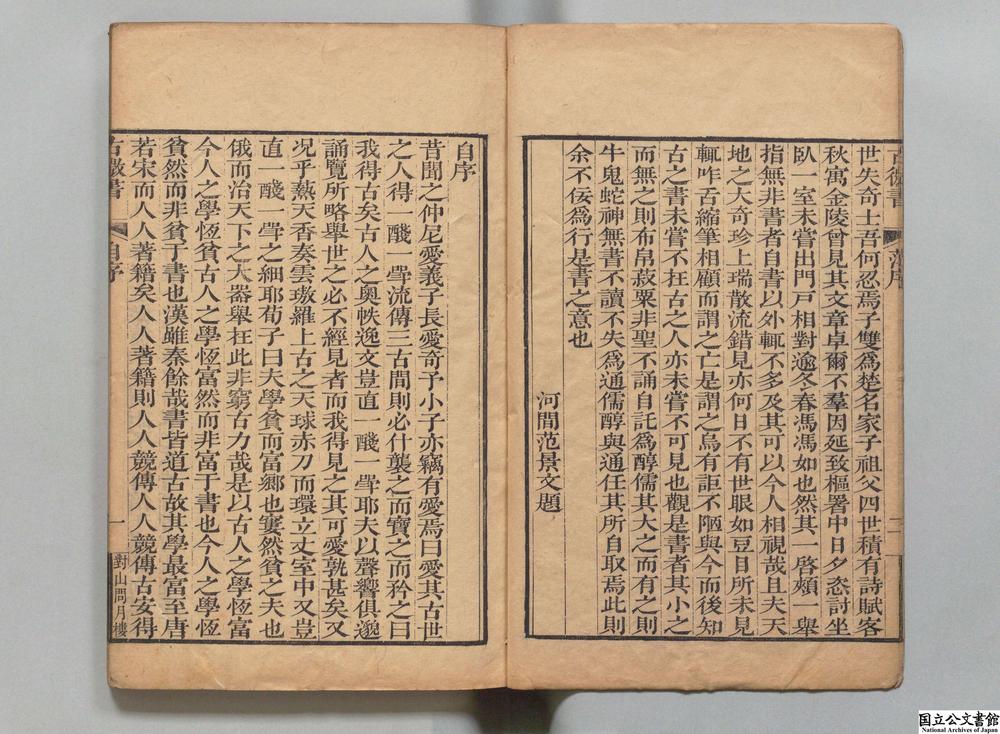 古微書
范序
二
世失奇士吾何忍焉子雙爲楚名家子祖父四世積有詩賦客
秋寓金陵曾見其文章卓爾不羣因延致樞署中日夕恣討坐
臥一室未嘗出門戸相對逾冬春馮馮如也然其一啓頰一舉
指無非書者自書以外輒不多及其可以今人相視哉且夫天
地之大奇珍上瑞散流錯見亦何日不有世眼如豆目所未見
輒咋舌縮筆相顧而謂之亡是謂之烏有詎不陋與今而後知
古之書未嘗不在古之人亦未嘗不可見也觀是書者其小之
而無之則布帛菽粟非聖不誦自託爲醇儒其大之而有之則
牛鬼蛇神無書不讀不失爲通儒醇與通任其所自取焉此則
余不佞爲行是書之意也
河間范景文題
自序
昔聞之仲尼愛義子長愛奇予小子亦竊有愛焉曰愛其古世
之人得一醆一斝流傳三古間則必什襲之而寶之而矜之曰
我得古矣古人之奧帙逸文豈直一醆一斝耶夫以聲響俱邈
誦覽所略舉世之必不經見者而我得見之其可愛孰甚矣又
况乎熱天香奏雲璈羅上古之天球赤刀而環立丈室中又豈
直一醆一斝之細耶荀子曰夫學貧而富鄕也寠然貧之夫也
俄而治天下之大器舉在此非窮古力哉是以古人之學恆富
今人之學恆貧古人之學恆富然而非富于書也今人之學恆
貧然而非貧于書也漢雖秦餘哉書皆道古故其學最富至唐
若宋而人人著籍矣人人著籍則人人競傳人人競傳古安得
古微書
自序
一
對山問月樓
国立公文書館
National Archives of Japan